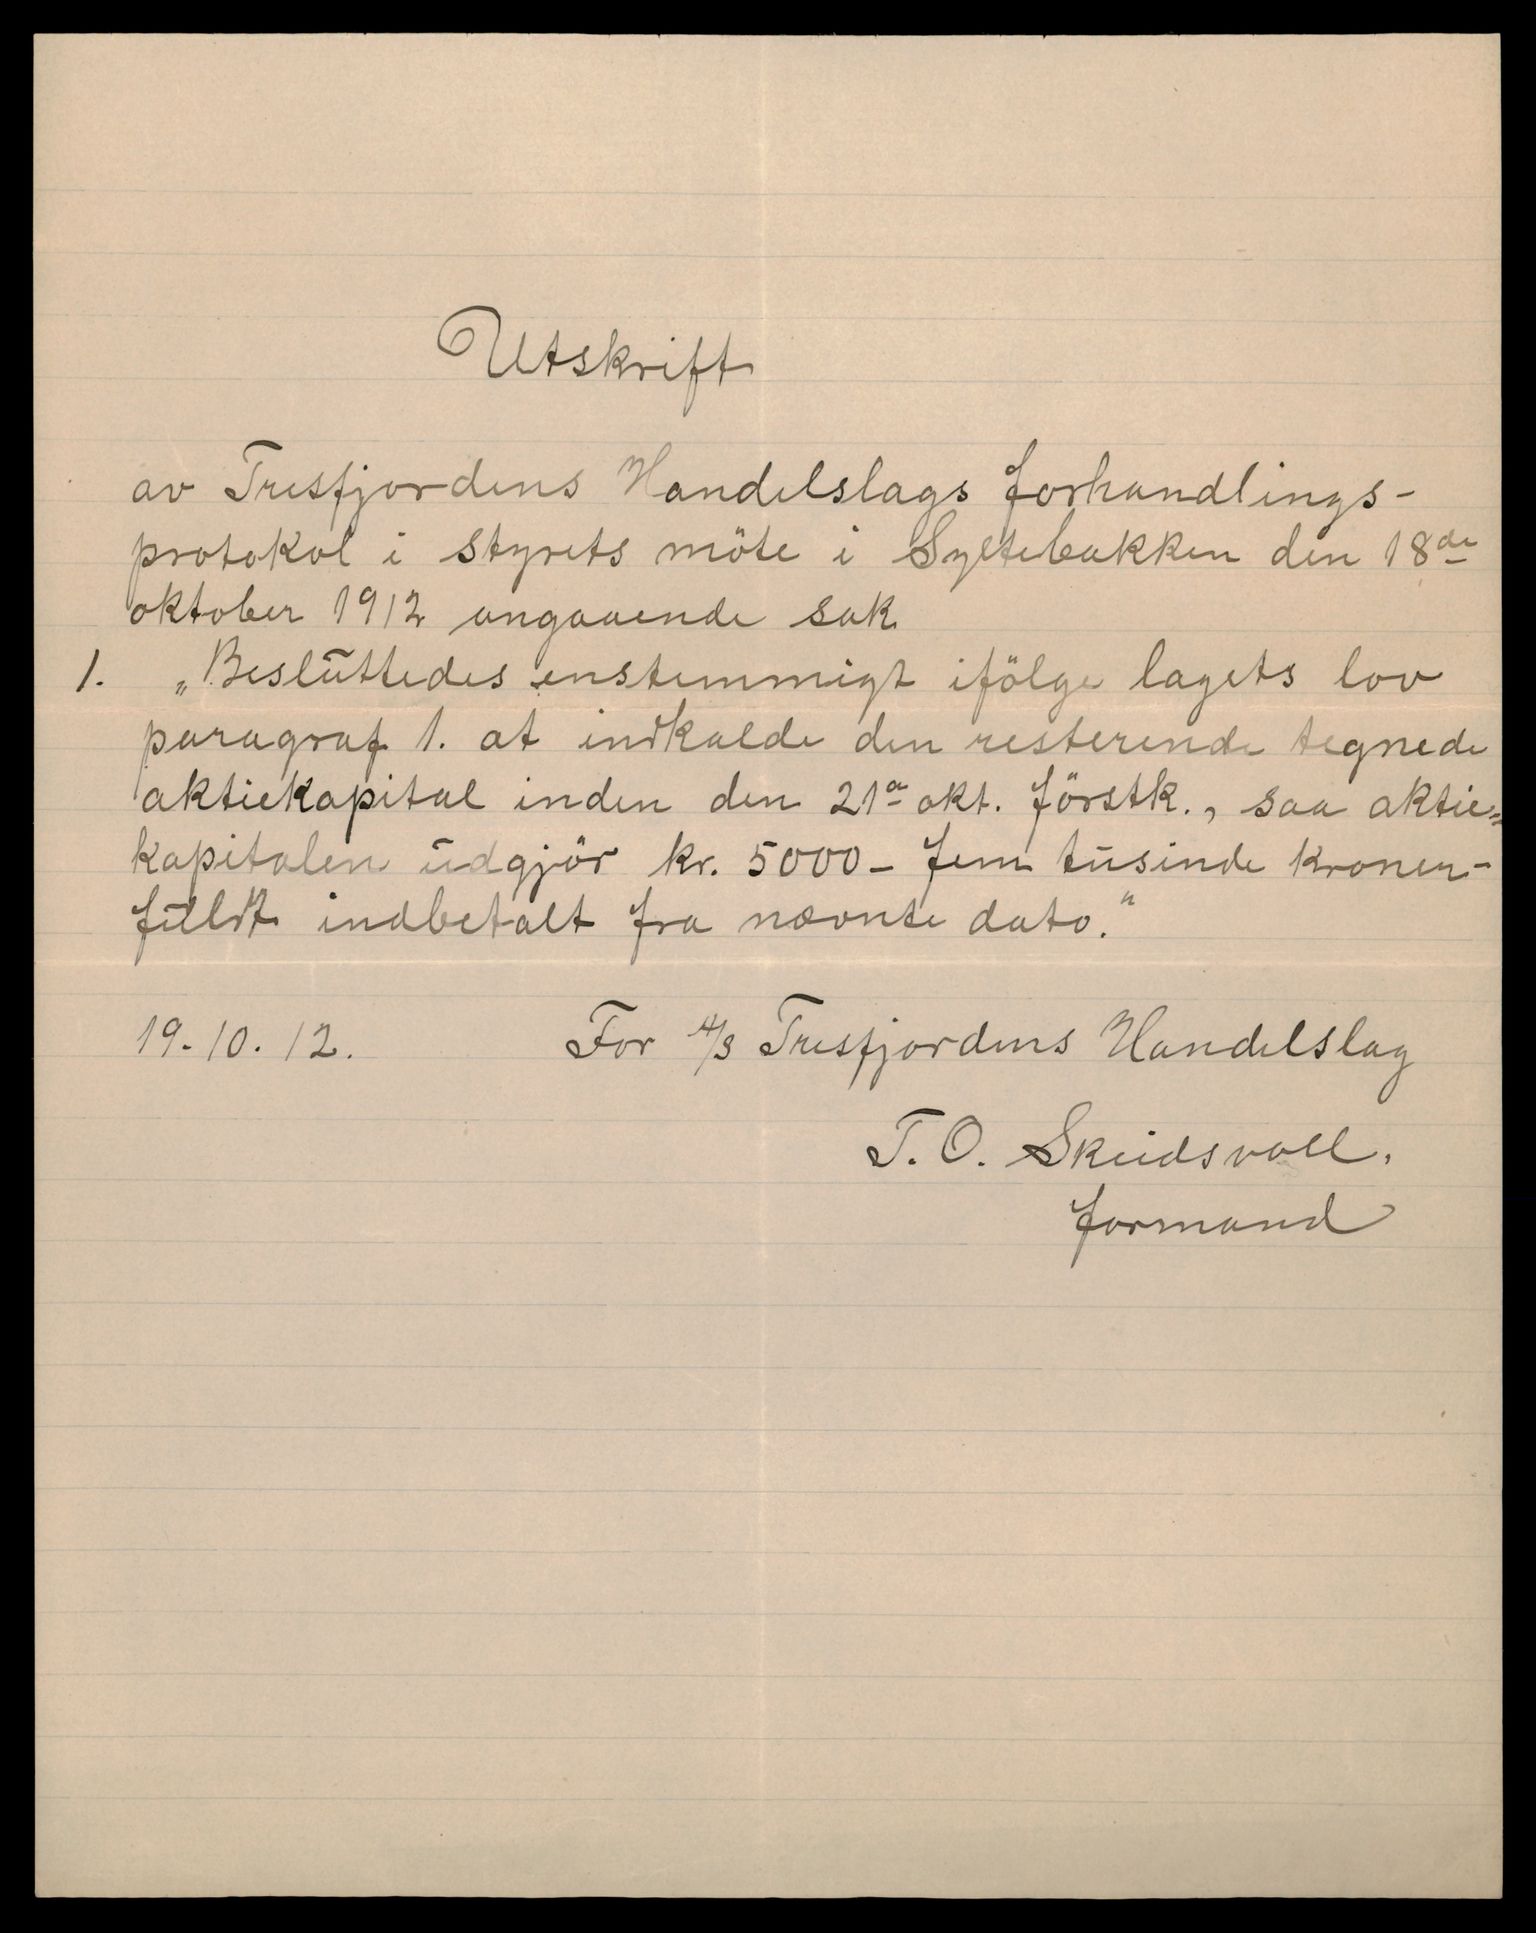 Utskrift
av Tresfjordens Handelslags forhandlings-
protokol i styrets möte i Syltebakken den 18de
oktober 1912 angaaende sak
1. „Besluttedes enstemmigt ifölge lagets lov
paragraf 1. at indkalde den resterende tegnede
aktiekapital inden den 21de okt. förstk., saa aktie-
kapitalen udgjör kr. 5000 - fem tusinde kroner -
fuldt indbetalt fra nævnte dato."
19.10.12. For A/S Tresfjordens Handelslag
T. O. Skeidsvoll.
formand